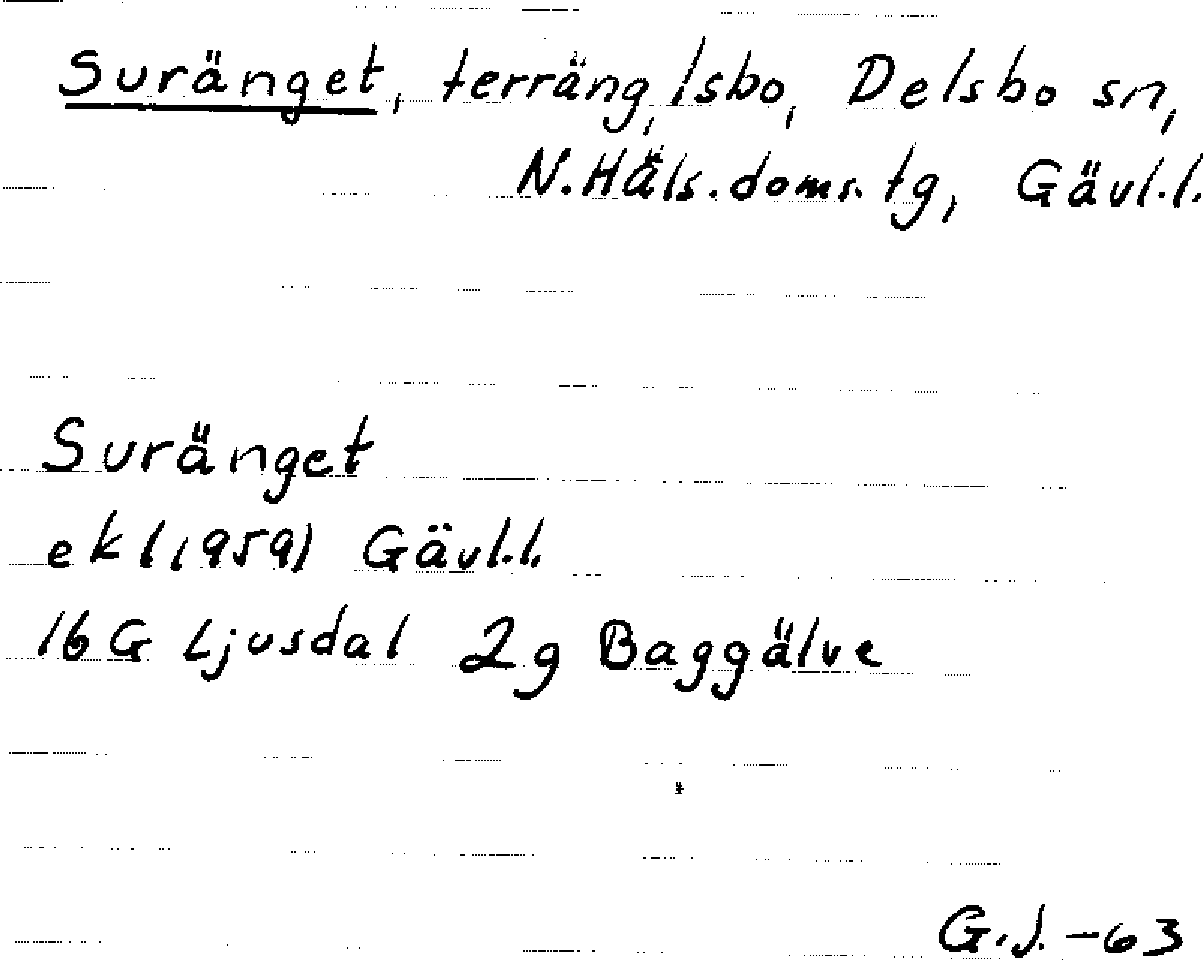 Suränget, terräng, Isbo, Delsbo sn,
N.Häls.doms.tg, Gävl.l.
Suränget
ekl(1959) Gävl.l.
16G Ljusdal 2g Baggälve
G.J. -63